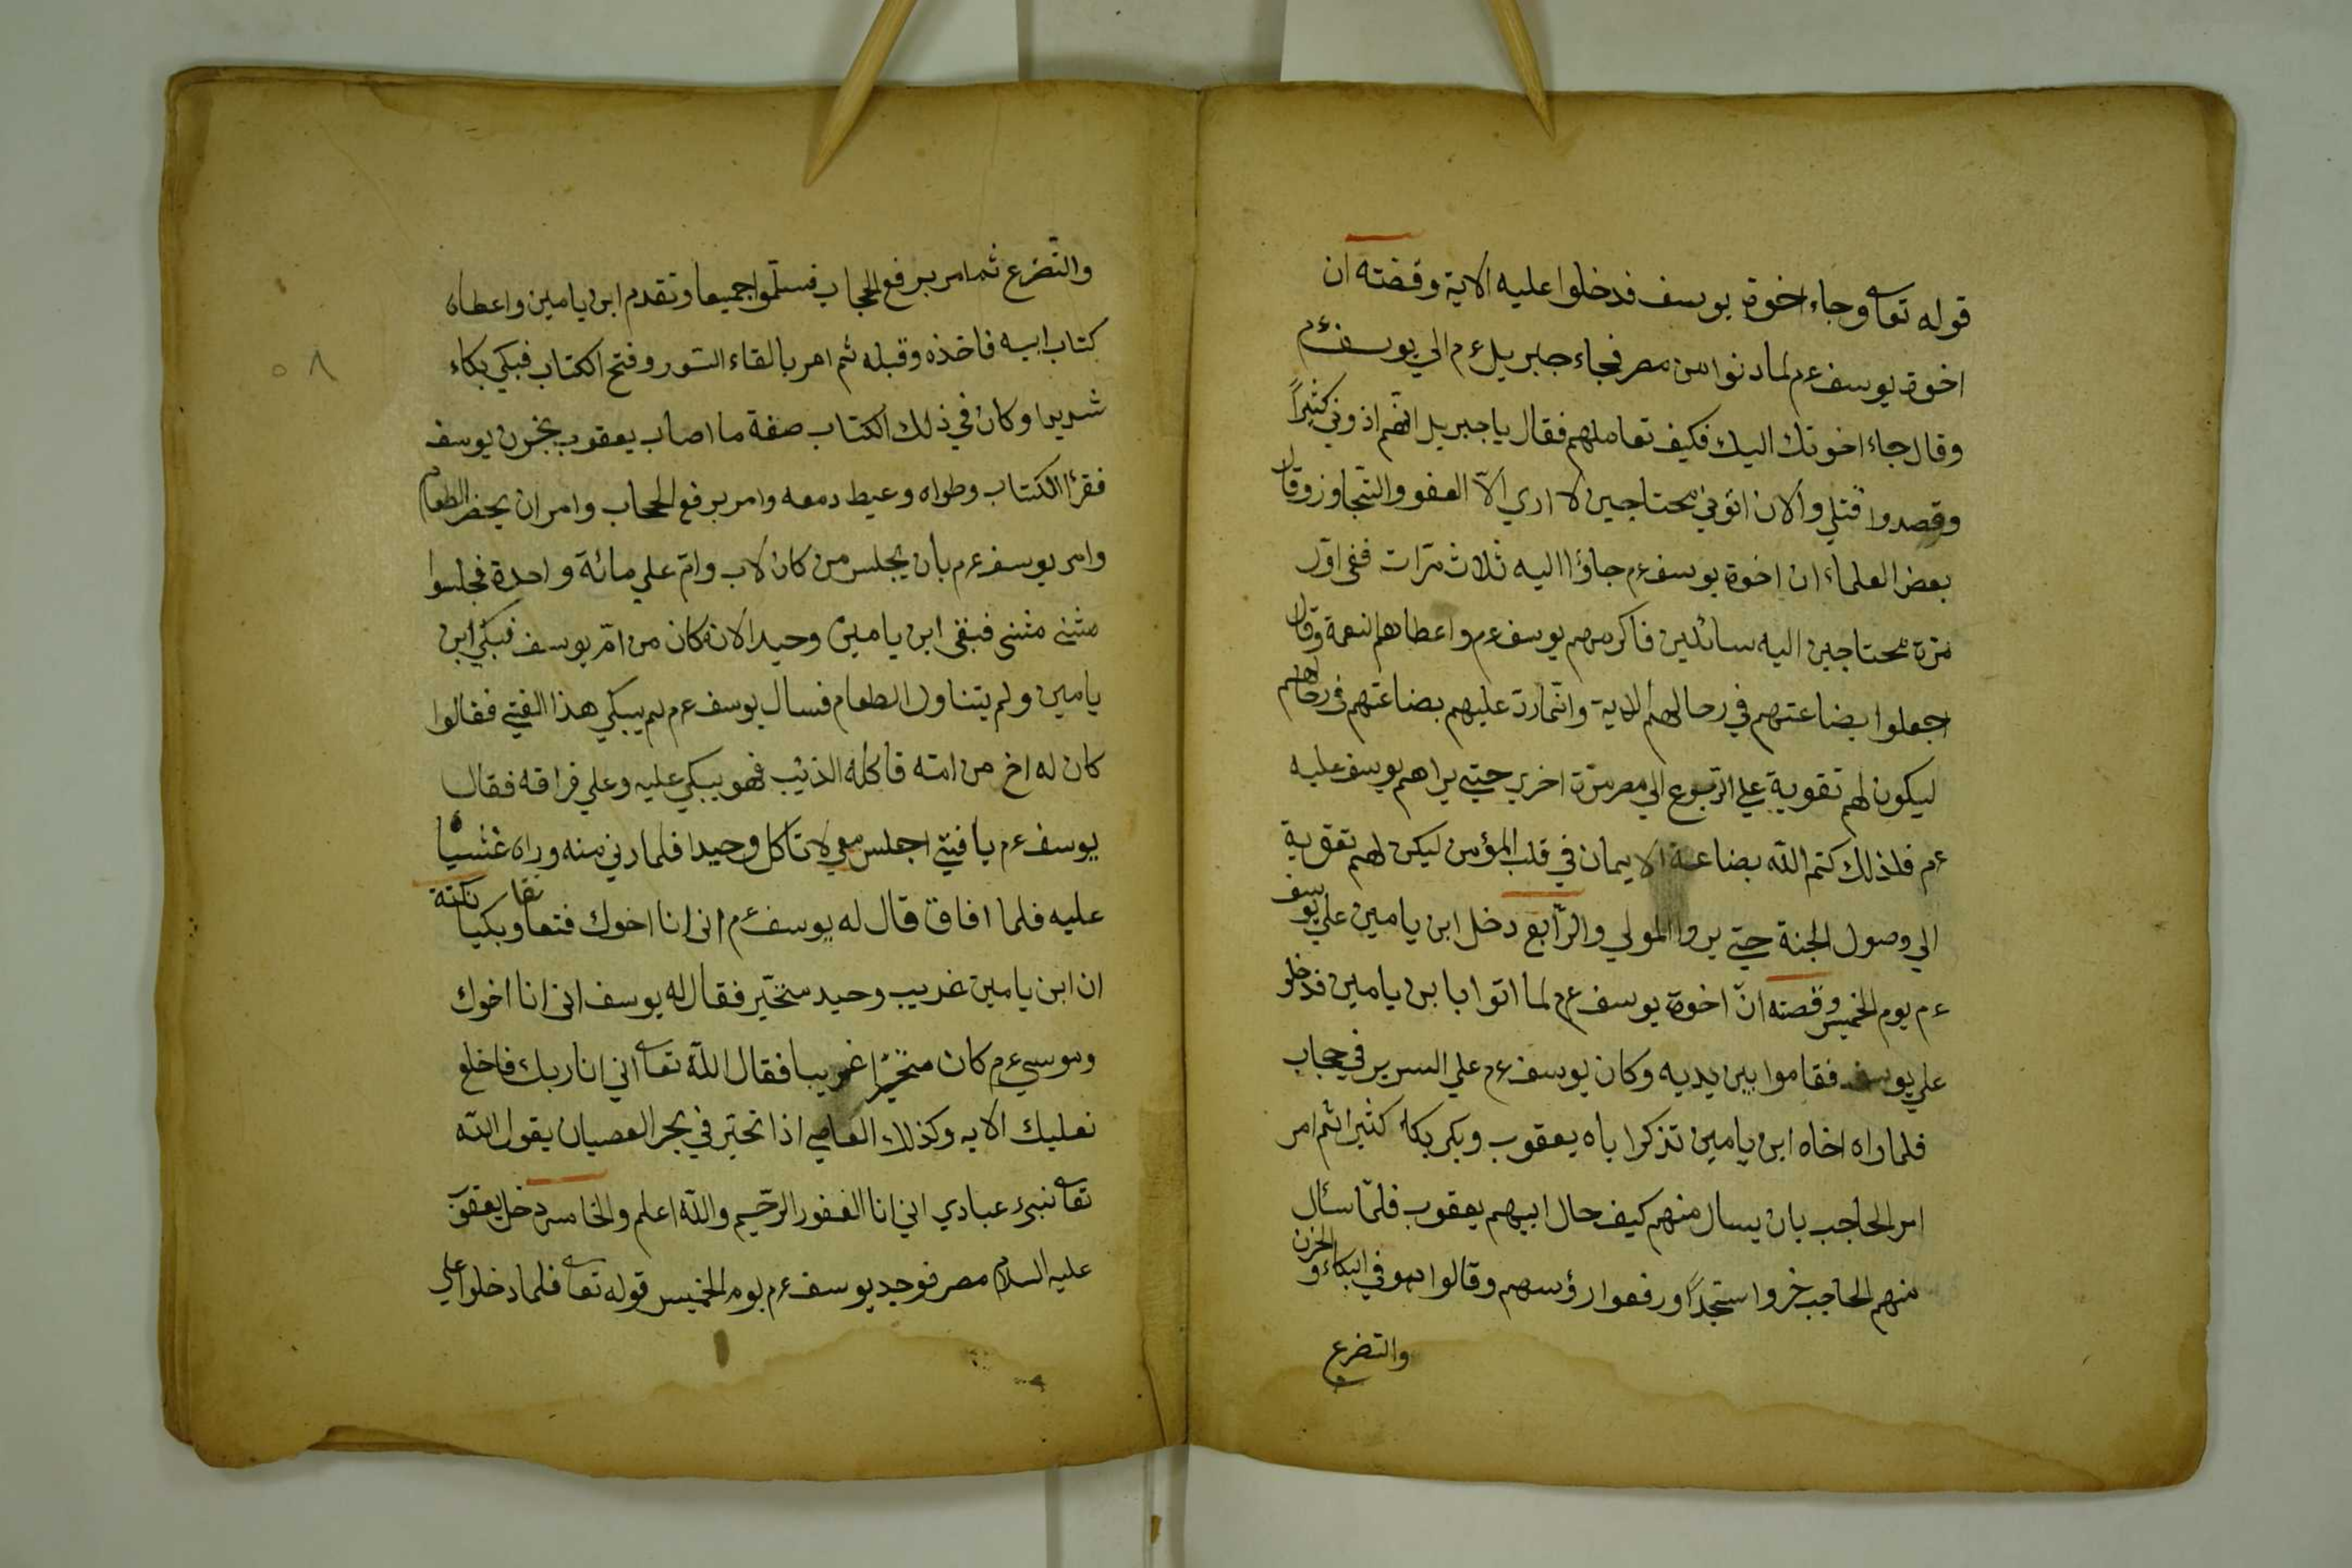 قوله تعا وجاء اخوة يوسف فدخلوا عليه الاية وقصته ان
اخوة يوسف ءم لما دنوا من مصر فجاء جبريل ءم الي يوسف ءم
وقال جاء اخوتك اليك فكيف تعاملهم فقال يا جبريل انهم اذوني كثيرًا
وقصدوا قتلي والان اتوني محتاجين لا اري الّا العفو والتّجاوز وقال
بعض العلماء ان اخوة يوسف ءم جاؤا اليه ثلاث مرّات ففى اوّل
مرّة محتاجين اليه سائلين فاكرمهم يوسف ءم واعطاهم النعمة وقال
اجعلوا بضاعتهم في رحالهم الاية وانّما ردّ عليهم بضاعتهم فى رحالهم
ليكون لهم تقوية علي الرّجوع الي مصر مرّة اخري حتي يراهم يوسف عليه
ءم فلذلك كتم اللّه بضاعة الايمان في قلب المؤمن ليكن لهم تقوية
الي وصول الجنة حتي يروا المولي والرّابع دخل ابن يامين علي يوسف
ءم يوم الخميس وقصته انّ اخوة يوسف ءم لما اتوا بابن يامين فدخلوا
علي يوسف فقاموا بين يديه وكان يوسف ءم علي السرير في حجاب
فلما راه اخاه ابن يامين تذكر اباه يعقوب وبكى بكاء كثيرا ثم امر
امر الحاجب بان يسال منهم كيف حال ابيهم يعقوب فلمّا سأل
منهم الحاجب خروا سجّدًا ورفعوا رؤسهم وقالوا هو في البكاء والحزن
والتضرع
والتّضرع ثم امر برفع الحجاب فسلّموا جميعا وتقدم ابن يامين واعطاه
كتاب ابيه فاخذه وقبله ثم امر بالقاء الستور وفتح الكتاب فبكي بكاء
شديدا وكان في ذلك الكتاب صفة ما اصاب يعقوب بحزن يوسف
فقرأ الكتاب وطواه وعيط دمعه وامر برفع الحجاب وامر ان يحضر الطعام
وامر يوسف ءم بان يجلس من كان لاب وامّ علي مائة واحدة فجلسوا
مثنى مثنى فبقى ابن يامين وحيدا لانه كان من امّ يوسف فبكي ابن
يامين ولم يتناول الطعام فسال يوسف ءم لم يبكي هذا الفتي فقالوا
كان له اخ من امّه فاكله الذئب فهو يبكي عليه وعلي فراقه فقال
يوسف ءم يا فتي اجلس معي لا تاكل وحيدا فلما دني منه وراه غشيا
عليه فلما افاق قال له يوسف ءم انى انا اخوك فتعانقا وبكيا نكتة
ان ابن يامين غريب وحيد متحيّر فقال له يوسف انى انا اخوك
وموسي ءم كان متحيّرا غريبا فقال اللّه تعا اني انا ربك فاخلع
نعليك الايه وكذلك العاصي اذا تحيّر في بحر العصيان يقول اللّه
تعا نبئ عبادي اني انا الغفور الرّحيم واللّه اعلم والخامس دخل يعقوب
عليه السلام مصر فوجد يوسف ءم يوم الخميس قوله تعا فلما دخلوا علي